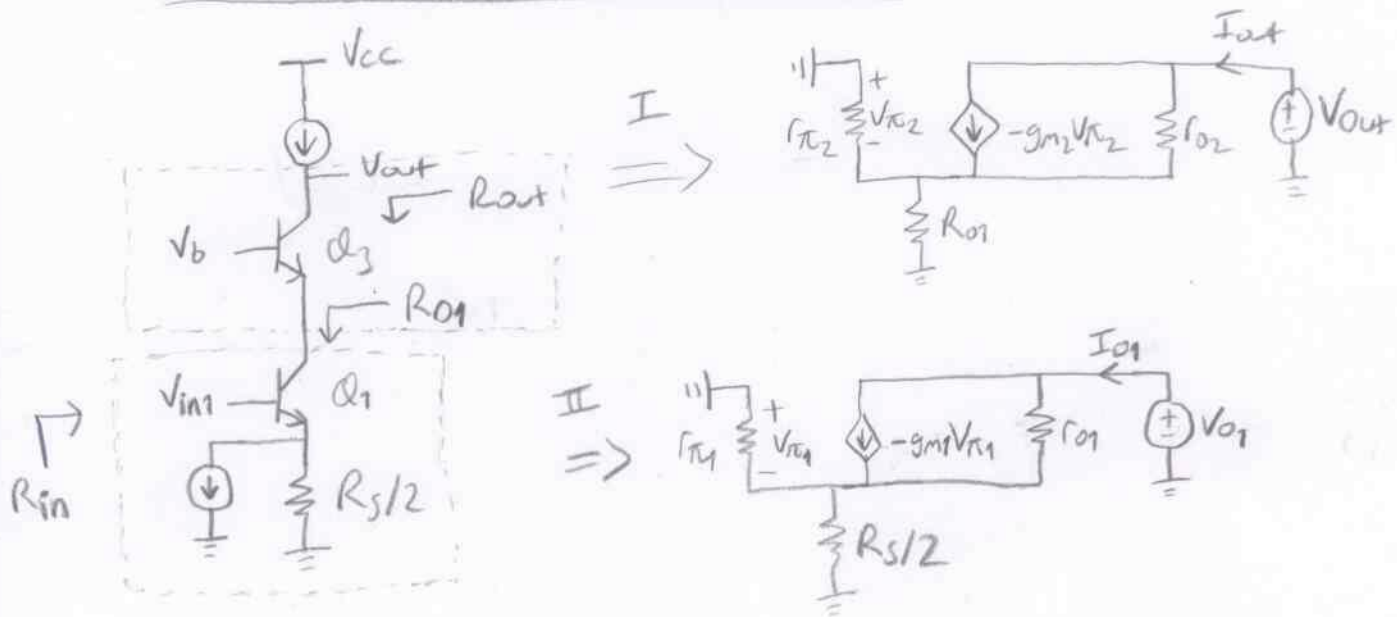 Vcc
Vout
Rout
Vb
Q3
R01
Vin1
Q1
Rin
RS/2
I
Iout
rπ2
+
Vπ2
-
-gm2Vπ2
ro2
+
-
Vout
R01
II
I01
rπ1
+
Vπ1
-
-gm1Vπ1
ro1
+
-
Vo1
RS/2